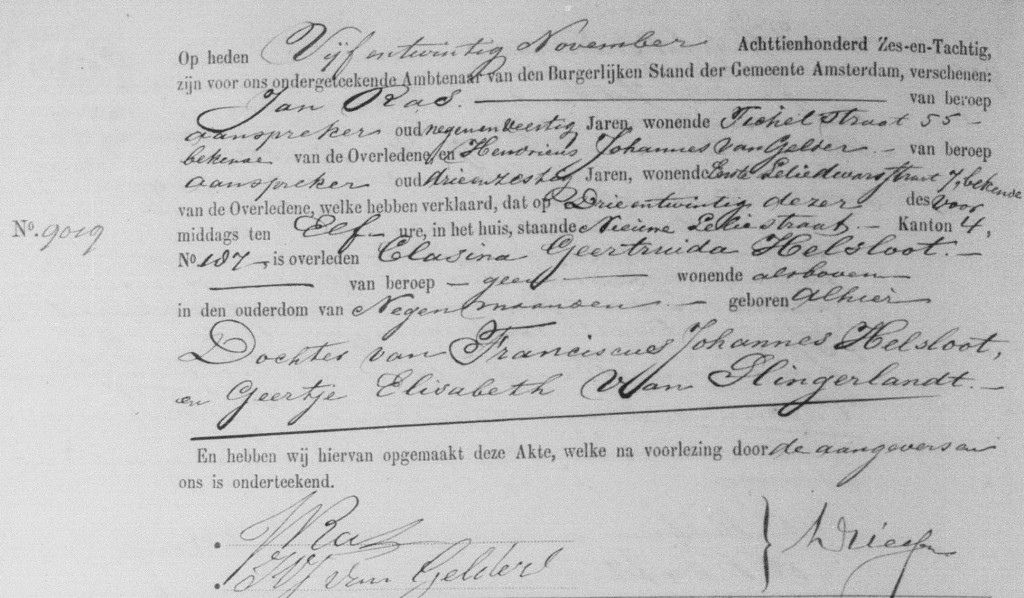 Op heden Vijfentwintig November Achttienhonderd Zes-en-Tachtig,
zijn voor ons ondergeteekende Ambtenaar van den Burgerlijken Stand der Gemeente Amsterdam, verschenen:
Jan Ras. van beroep
aanspreker oud negenenveertig Jaren, wonende Tichelstraat 55 -
bekende van de Overledene, en Henricus Johannes van Gelder - van beroep
aanspreker oud drieenzestig Jaren, wonende Eerste Leliedwarsstraat 7, bekende
van de Overledene, welke hebben verklaard, dat op Drieentwintig dezer des voor
middags ten Elf - ure, in het huis, staande Nieuwe Leliestraat - Kanton 4,
No. 9019
No 187 -, is overleden Clasina Geertruida Helsloot. -
van beroep - geen wonende alsboven
in den ouderdom van Negen maanden - geboren Alhier
Dochter van Franciscus Johannes Helsloot,
en Geertje Elisabeth van Slingerlandt. -
En hebben wij hiervan opgemaakt deze Akte, welke na voorlezing door de aangevers en
ons is onderteekend.
J Ras
HJ van Gelder